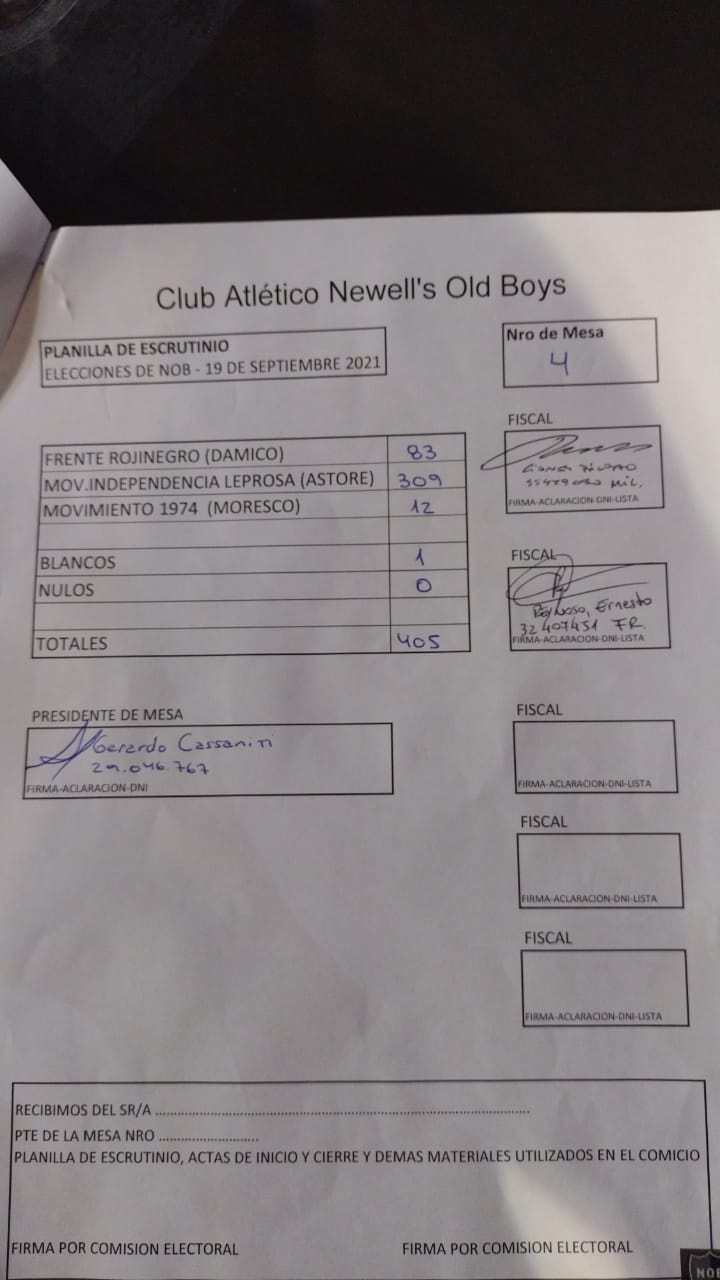 Club Atlético Newell's Old Boys
PLANILLA DE ESCRUTINIO
ELECCIONES DE NOB - 19 DE SEPTIEMBRE 2021
Nro de Mesa
4
FRENTE ROJINEGRO (DAMICO) 83
MOV.INDEPENDENCIA LEPROSA (ASTORE) 309
MOVIMIENTO 1974 (MORESCO) 12
BLANCOS 1
NULOS 0
TOTALES 405
FISCAL
MIL.
FIRMA-ACLARACION-DNI-LISTA
FISCAL
Reynoso, Ernesto
32 407451 FR.
FIRMA-ACLARACION-DNI-LISTA
PRESIDENTE DE MESA
Gerardo Cassaniti
29.046.767
FIRMA-ACLARACION-DNI
FISCAL
FIRMA-ACLARACION-DNI-LISTA
FISCAL
FIRMA-ACLARACION-DNI-LISTA
FISCAL
FIRMA-ACLARACION-DNI-LISTA
RECIBIMOS DEL SR/A ................................................................................................
PTE DE LA MESA NRO ............................
PLANILLA DE ESCRUTINIO, ACTAS DE INICIO Y CIERRE Y DEMAS MATERIALES UTILIZADOS EN EL COMICIO
FIRMA POR COMISION ELECTORAL FIRMA POR COMISION ELECTORAL